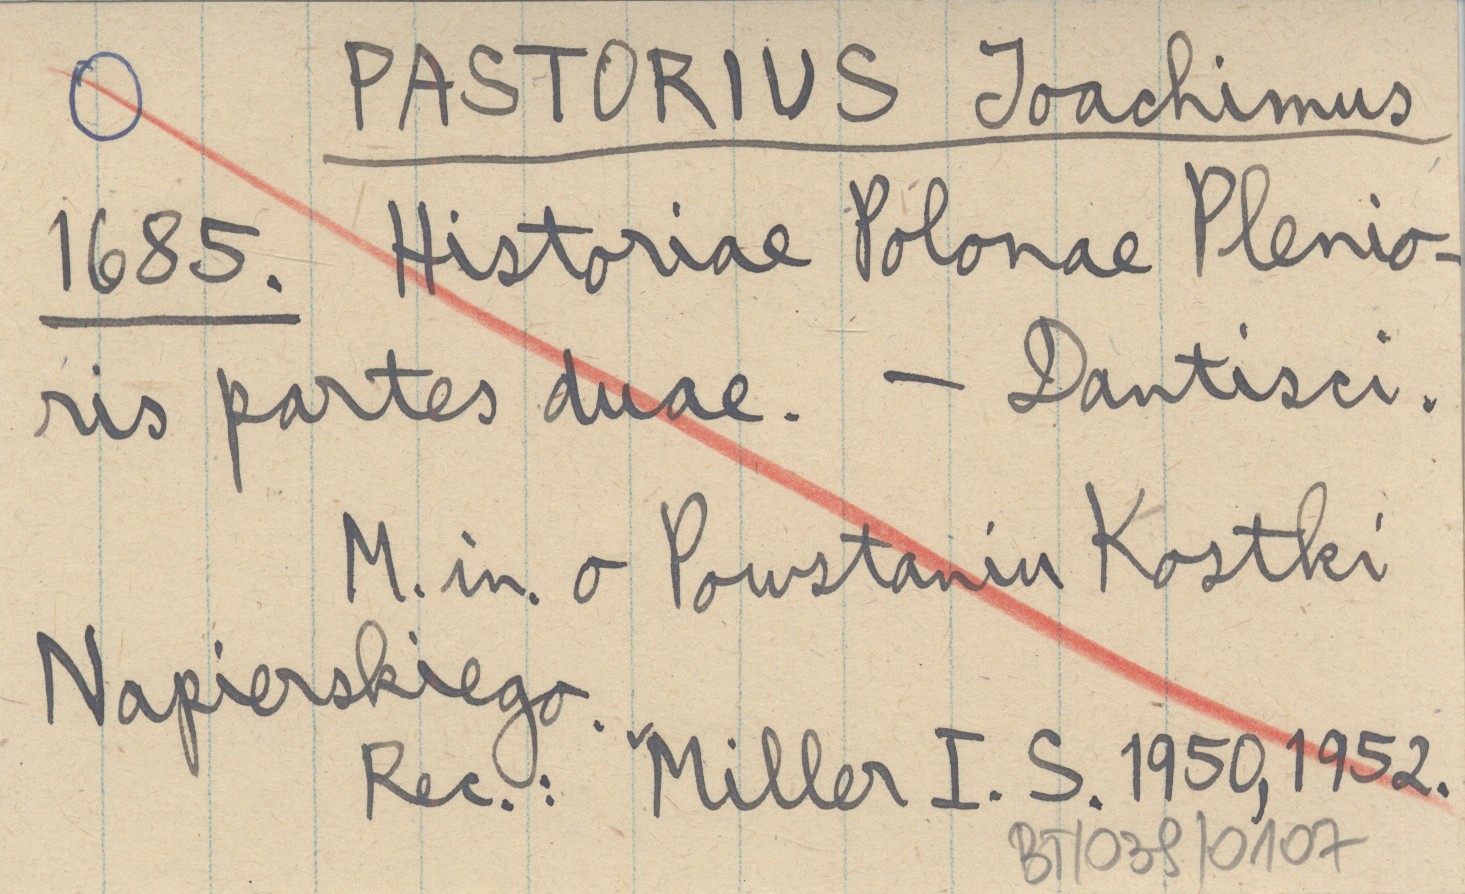 PASTORIUS Joachimus
1685. Historiae Polonae Plenio-
ris partes duae. — Dantisci.
M. in. o Powstaniu Kostki
Napierskiego.
Rec.: Miller I. S. 1950, 1952.
BT/039/0107